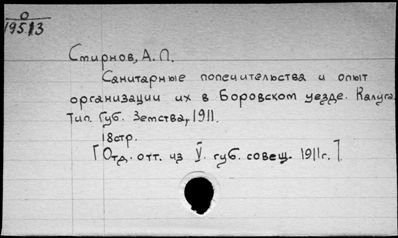 0
195.13
Смирнов, А. П.
Санитарные попечительства и опыт
организации их в Боровском уезде. Калуга,
Тип. Губ. Земства, 1911.
18стр.
[Отд. отт. из V. губ. совещ. 1911г.].